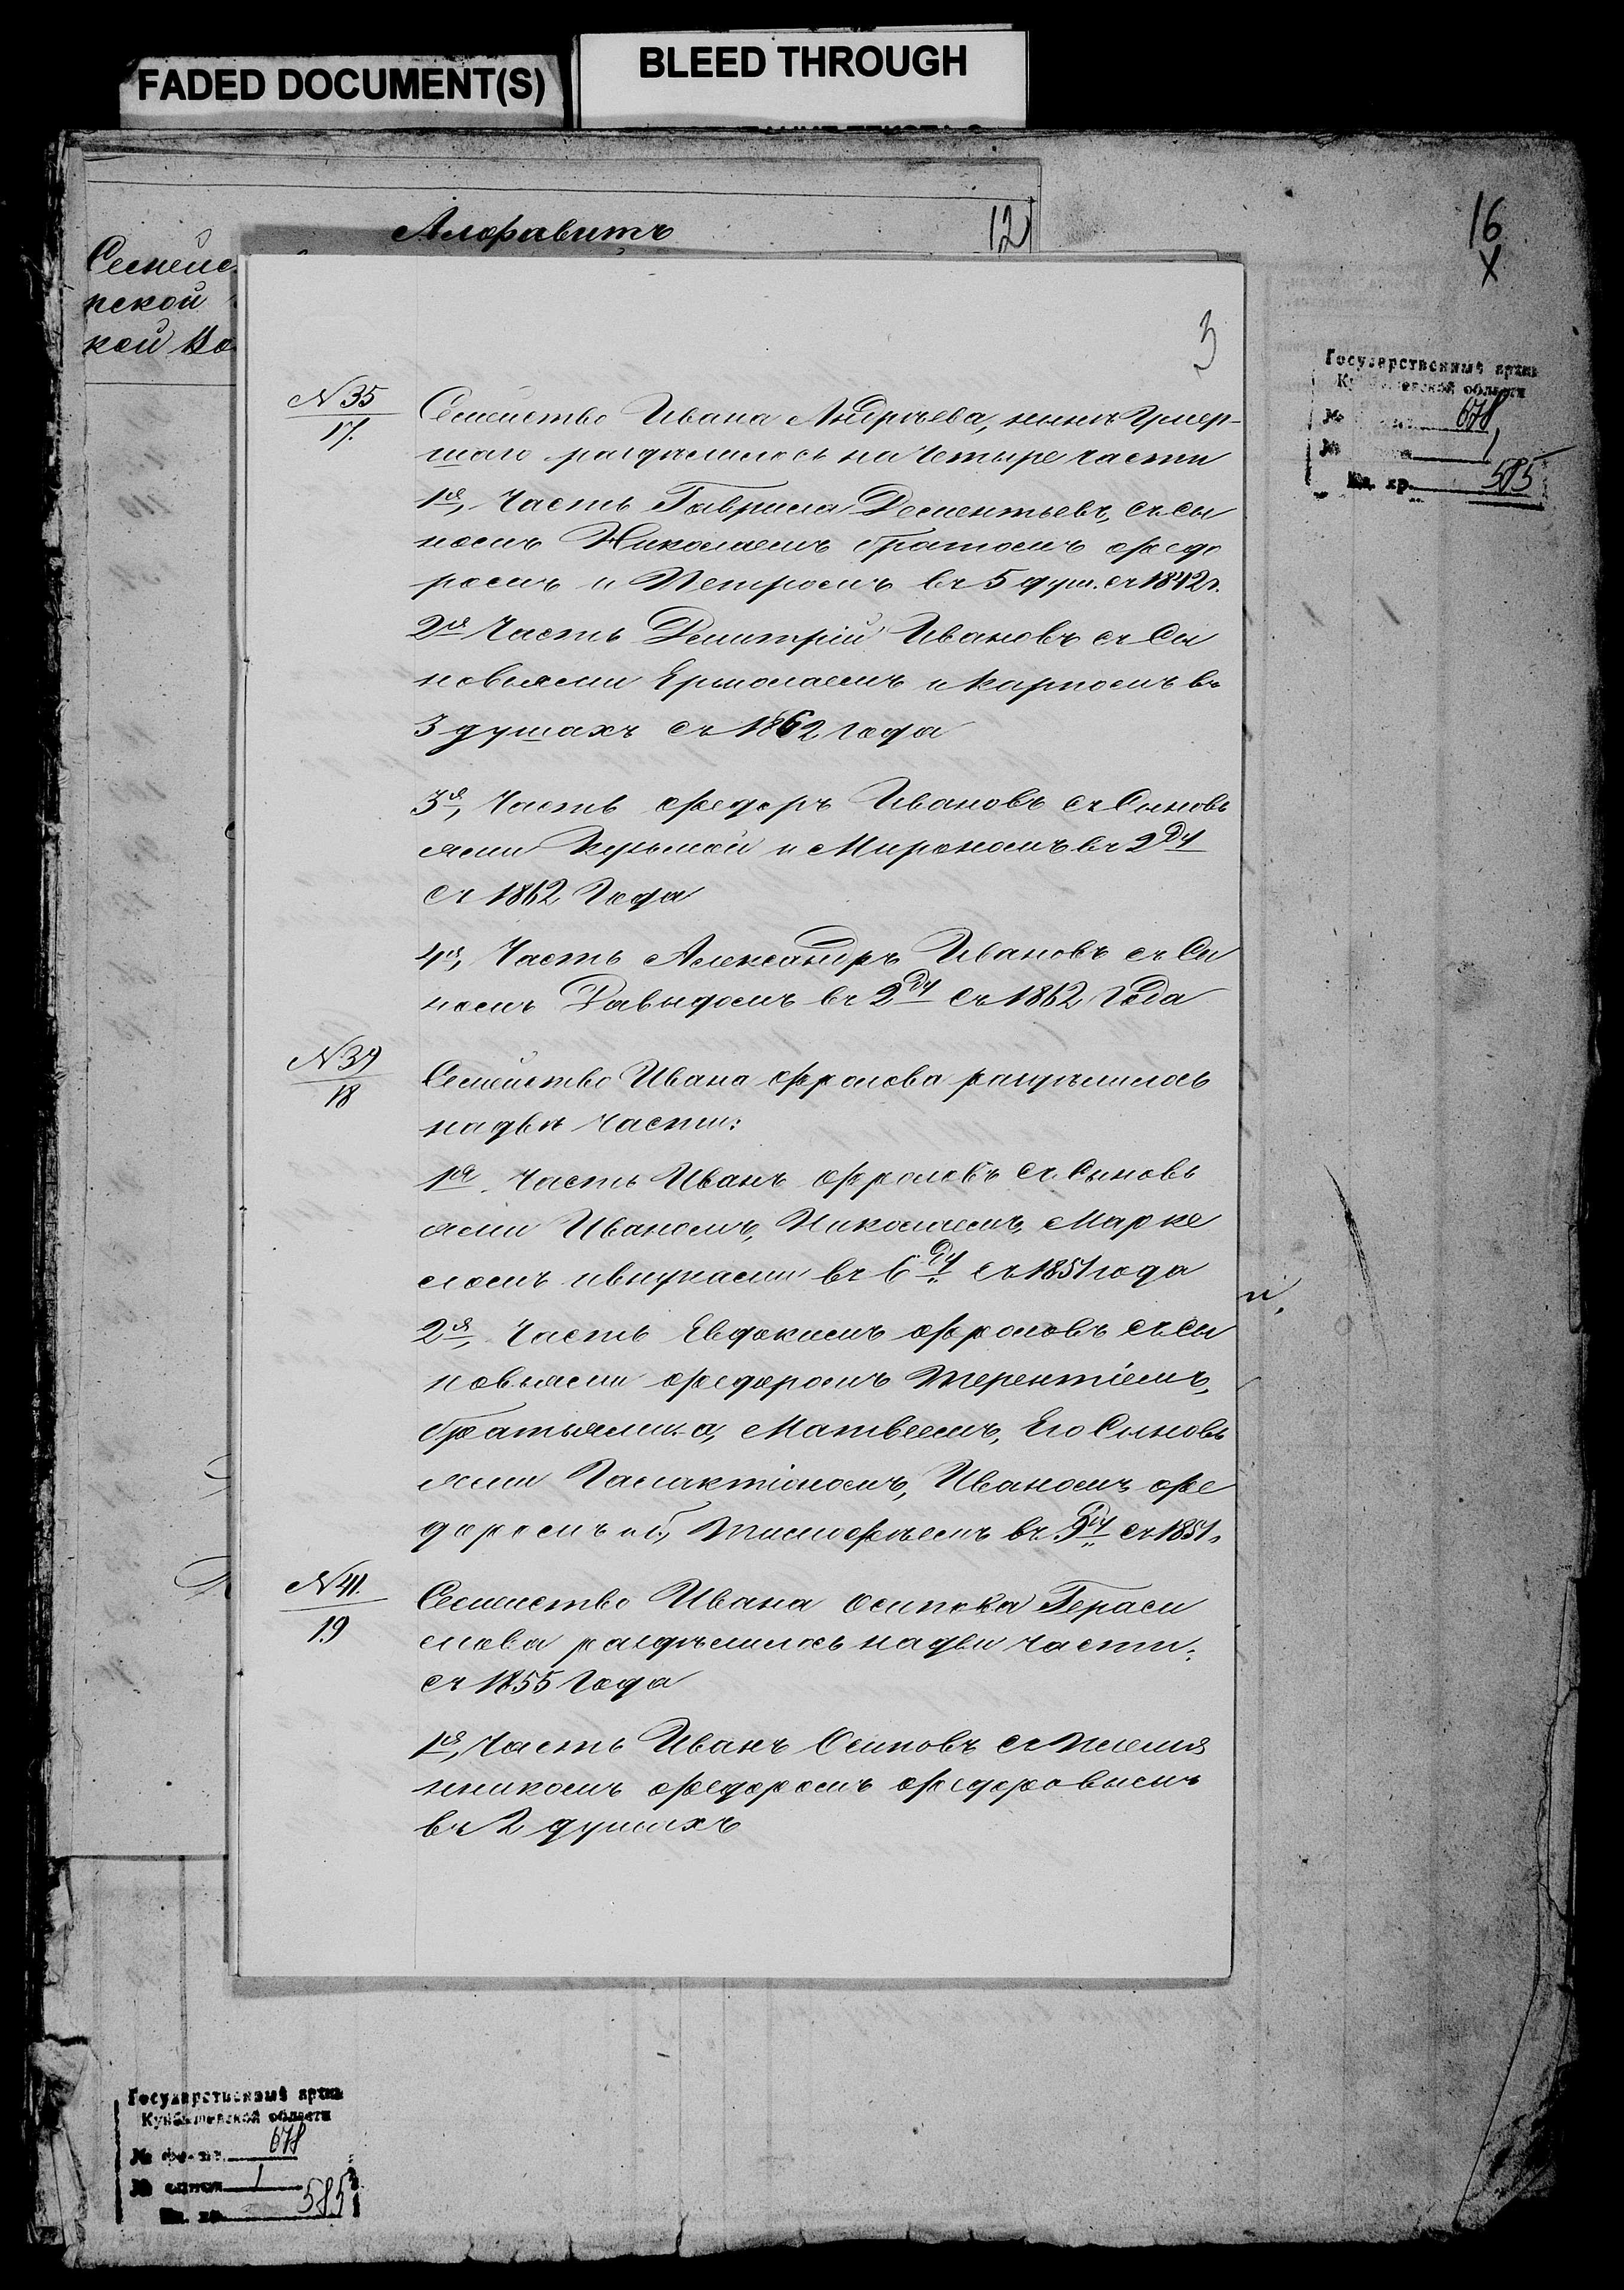 FADED DOCUMENT(S)
BLEED THROUGH
Алфавитъ
12
16
X
3
Государственный архив
Куйбышевской области
678
1
Ед. хр. 585
№ 35
17.
Семейство Ивана Андрѣева, нынѣ Умер-
шаго раздѣлилось на Четыре части
1я, Часть Гаврила Дементьевъ, съ Сы
номъ Николаемъ братомъ Федо
ромъ и Петромъ въ 5 душ. съ 1842 г.
2я Часть Димитрій Ивановъ съ Сы
новьями Ермолаемъ и Карпомъ въ
3 душахъ съ 1862 года
3я, Часть Федоръ Ивановъ съ Сыновь
ями Кузьмой и Мирономъ въ 2 ду
съ 1862 Года
4я, Часть Александръ Ивановъ съ Сы
номъ Давыдомъ въ 2 ду съ 1862 Года
№ 39
18
Семейство Ивана Фролова раздѣлилось
на двѣ Части:
1я Часть Иванъ Фроловъ съ Сыновь
ями Иваномъ, Николаемъ, Марке
ломъ и внуками въ 6 ду съ 1851 года
2я, Часть Евдокимъ Фроловъ съ Сы
новьями Федоромъ Терентіемъ,
братьями: а, Матвеемъ, Его Сыновь
ями Галактіономъ, Иваномъ Фе
доромъ и б, Тимофѣемъ въ 9 ду съ 1851 г.
№ 41.
19
Семейство Ивана Осипова Гераси
мова раздѣлилось на две части:
съ 1855 Года
1я, Часть Иванъ Осиповъ съ Племя
нникомъ Федоромъ Федоровымъ
въ 2 душахъ
Государственный архив
Куйбышевской области
№ фонда 678
№ описи 1
Ед. хр. 585